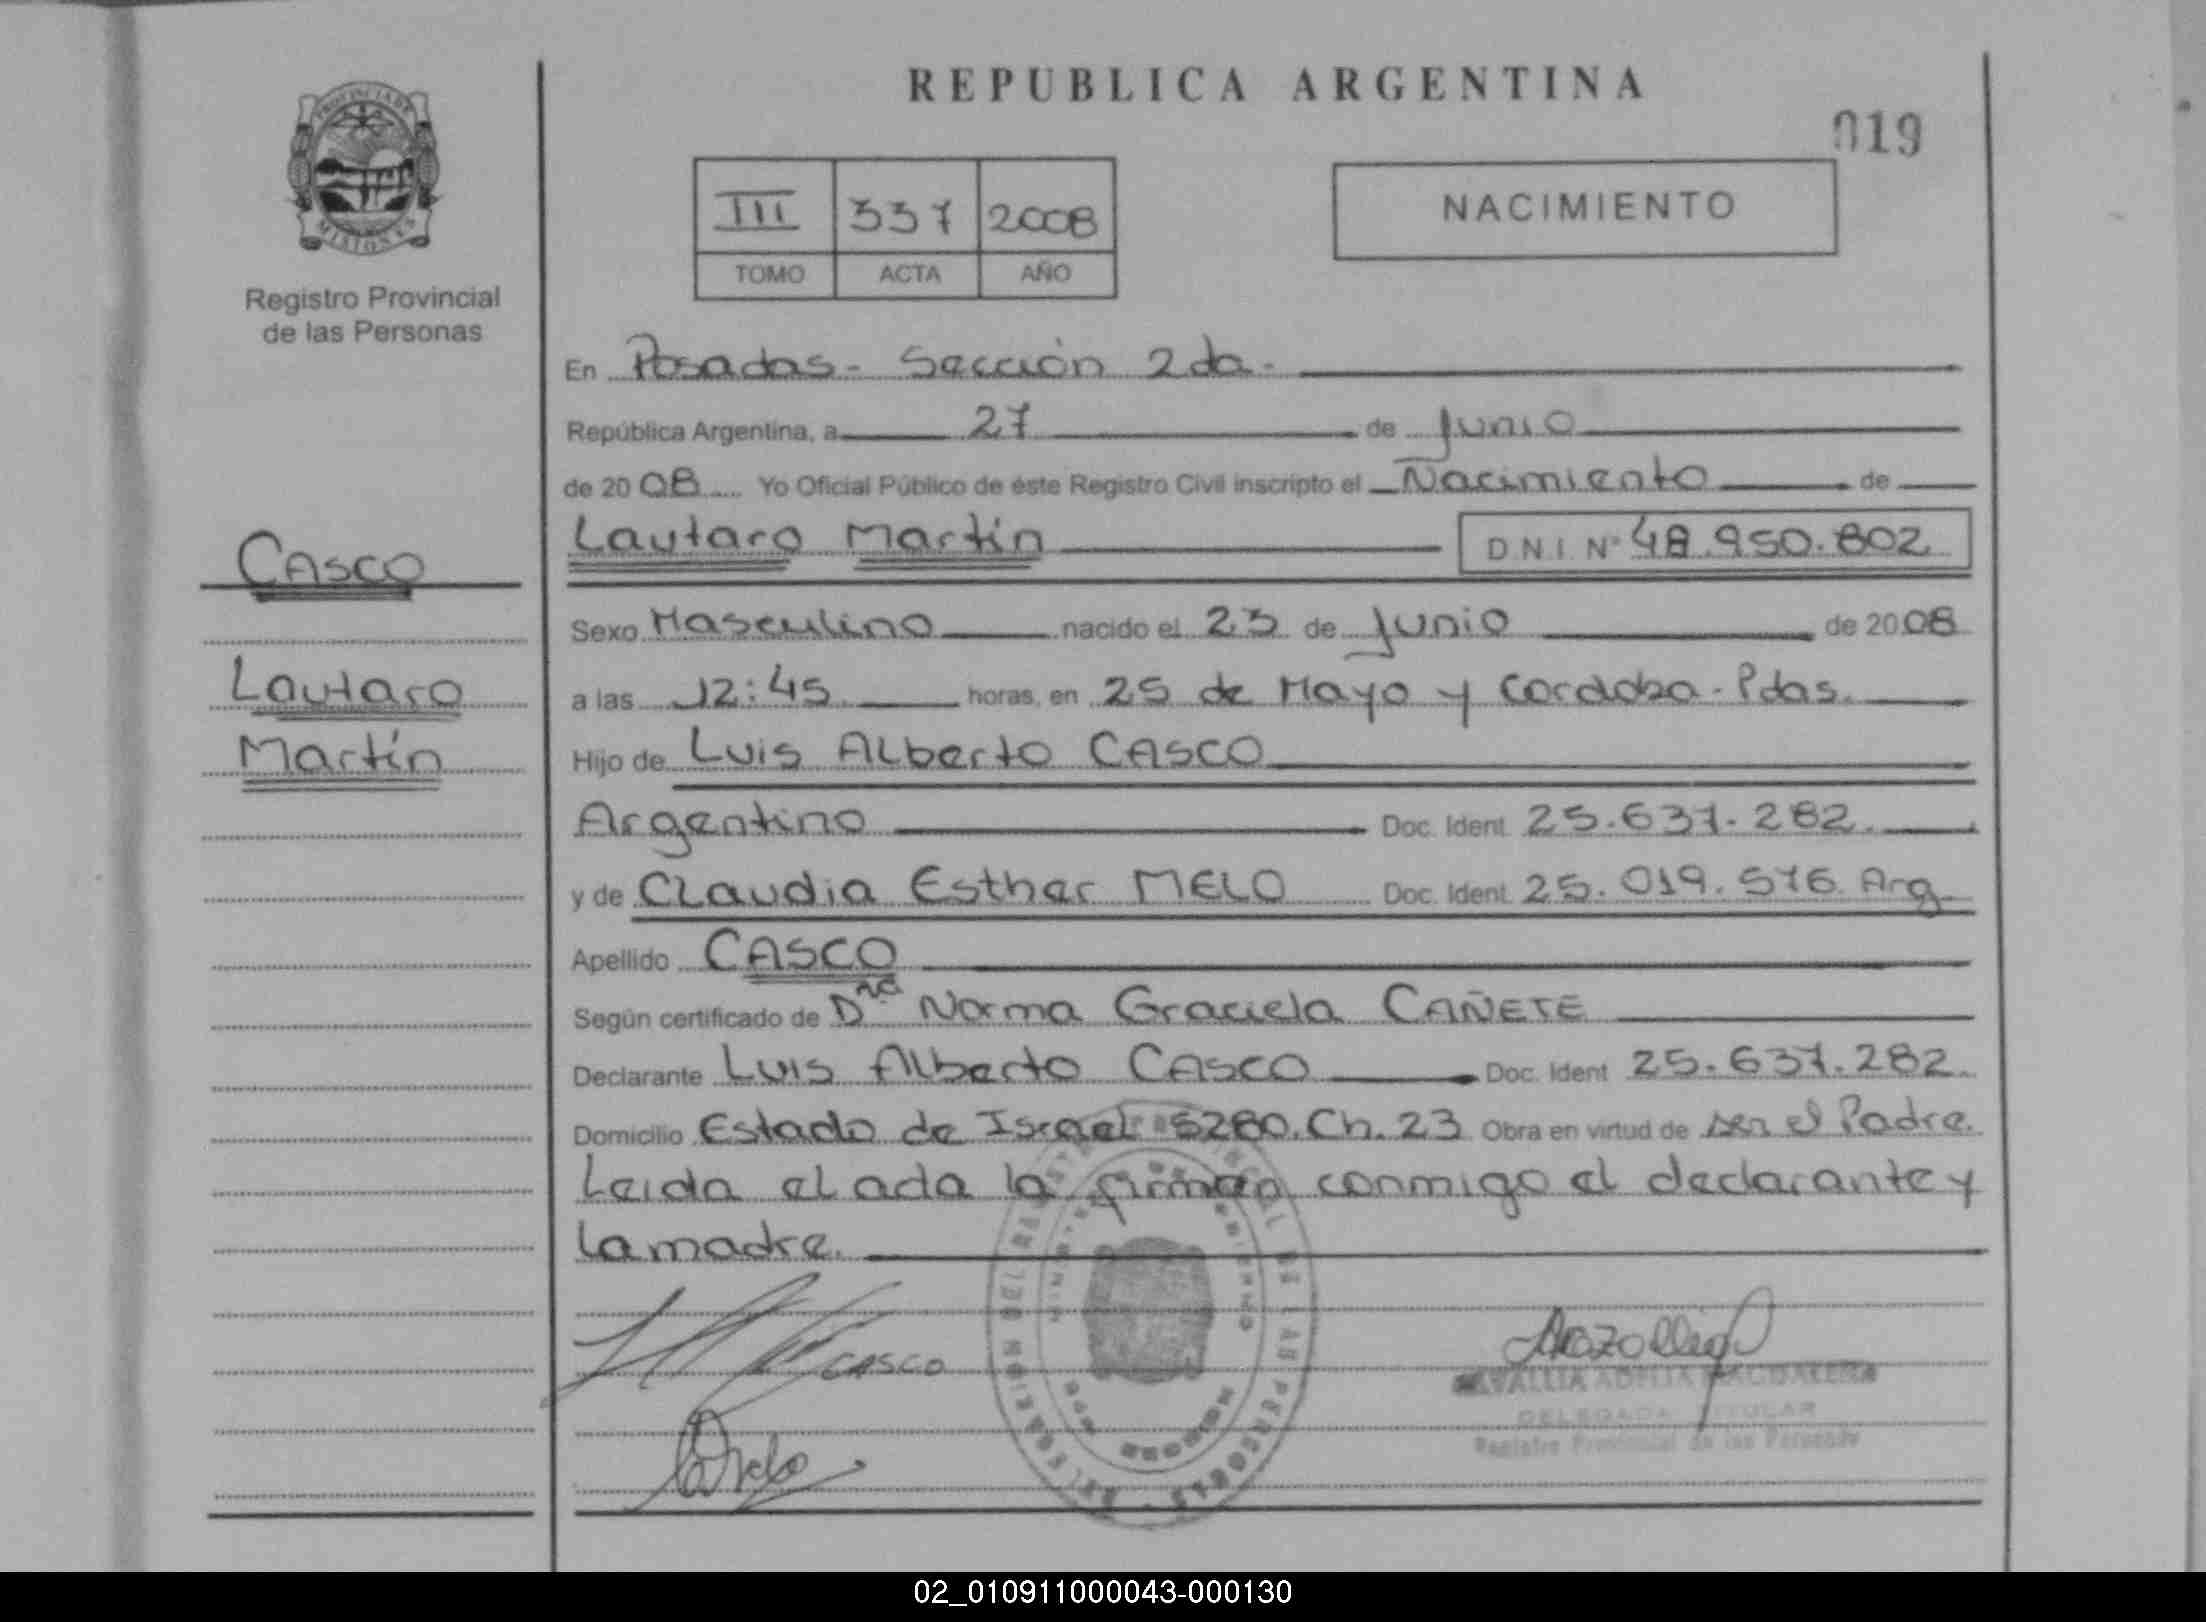 REPUBLICA ARGENTINA
019
PROVINCIA DE
MISIONES
Registro Provincial
de las Personas
III 337 2008
TOMO ACTA AÑO
NACIMIENTO
En Posadas - Sección 2da.
República Argentina, a 27 de Junio
de 2008 Yo Oficial Público de éste Registro Civil inscripto el Nacimiento de
Casco
Lautaro Martín D.N.I. Nº 48.950.802
Sexo Masculino nacido el 23 de Junio de 2008
Lautaro
a las 12:45 horas, en 25 de Mayo y Cordoba - Pdas.
Martín
Hijo de Luis Alberto CASCO
Argentino Doc. Ident 25.637.282.
y de Claudia Esther MELO Doc. Ident. 25.019.576 Arg
Apellido CASCO
Según certificado de Dra Norma Graciela CAÑETE
Declarante Luis Alberto CASCO Doc. Ident 25.637.282.
Domicilio Estado de Israel 5280. Ch. 23 Obra en virtud de ser el Padre.
Leida el acta la firman conmigo el declarante y
la madre.
CASCO
ADELIA MAGDALENA
DELEGADA TITULAR
Registro Provincial de las Personas
02_010911000043-000130